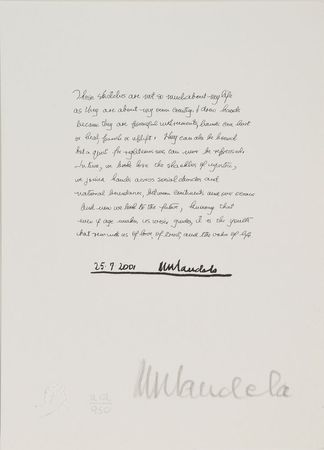 These sketches are not so much about my life
as they are about my own country. I drew hands
because they are powerful instruments, hands can hurt
or heal, punish or uplift. They can also be bound
but a quest for righteousness can never be repressed.
In time, we broke lose the shackles of injustice,
we joined hands across social divides and
national boundaries, between continents and over oceans
and now we look to the future, knowing that
even if age makes us wiser guides, it is the youth
that remind us of love, of trust and the value of life
25.7.2001 NMandela
/950
NMandela